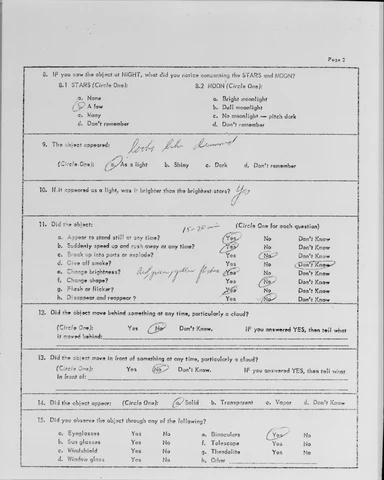 Page 2
8. If you saw the object at NIGHT, what did you notice concerning the STARS and MOON?
8.1 STARS (Circle One): 8.2 MOON (Circle One):
a. None a. Bright moonlight
b. A few b. Dull moonlight
c. Many c. No moonlight — pitch dark
d. Don't remember d. Don't remember
9. The object appeared: looks like diamond
(Circle One): a. As a light b. Shiny c. Dark d. Don't remember
10. If it appeared as a light, was it brighter than the brightest stars? Yes
11. Did the object: 15-20 min (Circle One for each question)
a. Appear to stand still at any time? Yes No Don't Know
b. Suddenly speed up and rush away at any time? Yes No Don't Know
c. Break up into parts or explode? Yes No Don't Know
d. Give off smoke? Yes No Don't Know
e. Change brightness? Red green yellow Yes No Don't Know
f. Change shape? Yes No Don't Know
g. Flash or flicker? Yes No Don't Know
h. Disappear and reappear? Yes No Don't Know
12. Did the object move behind something at any time, particularly a cloud?
(Circle One): Yes No Don't Know. IF you answered YES, then tell what
it moved behind:
13. Did the object move in front of something at any time, particularly a cloud?
(Circle One): Yes No Don't Know. IF you answered YES, then tell what
in front of:
14. Did the object appear: (Circle One): a. Solid b. Transparent c. Vapor d. Don't Know
15. Did you observe the object through any of the following?
a. Eyeglasses Yes No e. Binoculars Yes No
b. Sun glasses Yes No f. Telescope Yes No
c. Windshield Yes No g. Theodolite Yes No
d. Window glass Yes No h. Other